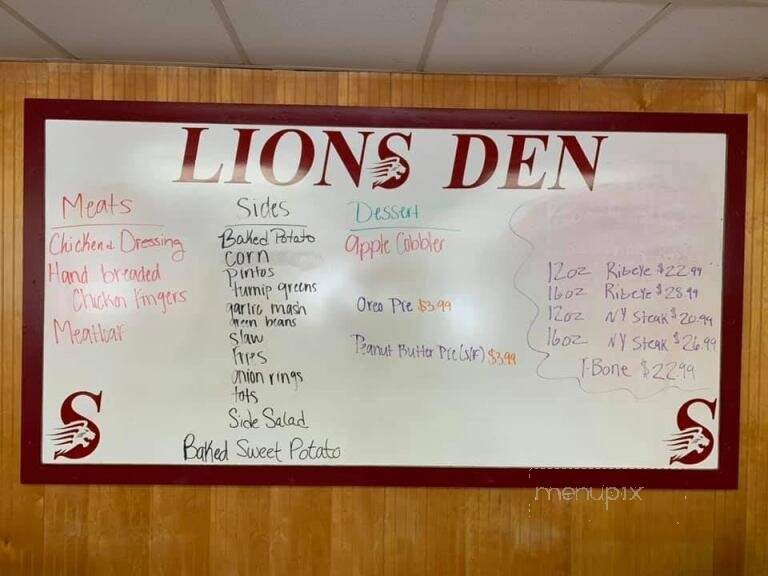 LIONS DEN
Meats
Chicken & Dressing
Hand breaded
Chicken Fingers
Meatloaf
Sides
Baked Potato
corn
pintos
turnip greens
garlic mash
green beans
slaw
fries
onion rings
tots
Side Salad
Baked Sweet Potato
Dessert
apple Cobbler
Oreo Pie $3.99
Peanut Butter Pie (S/F) $3.99
12oz Ribeye $22.99
16oz Ribeye $28.99
12oz NY Steak $20.99
16oz NY Steak $26.99
T-Bone $22.99
S
S
menupix